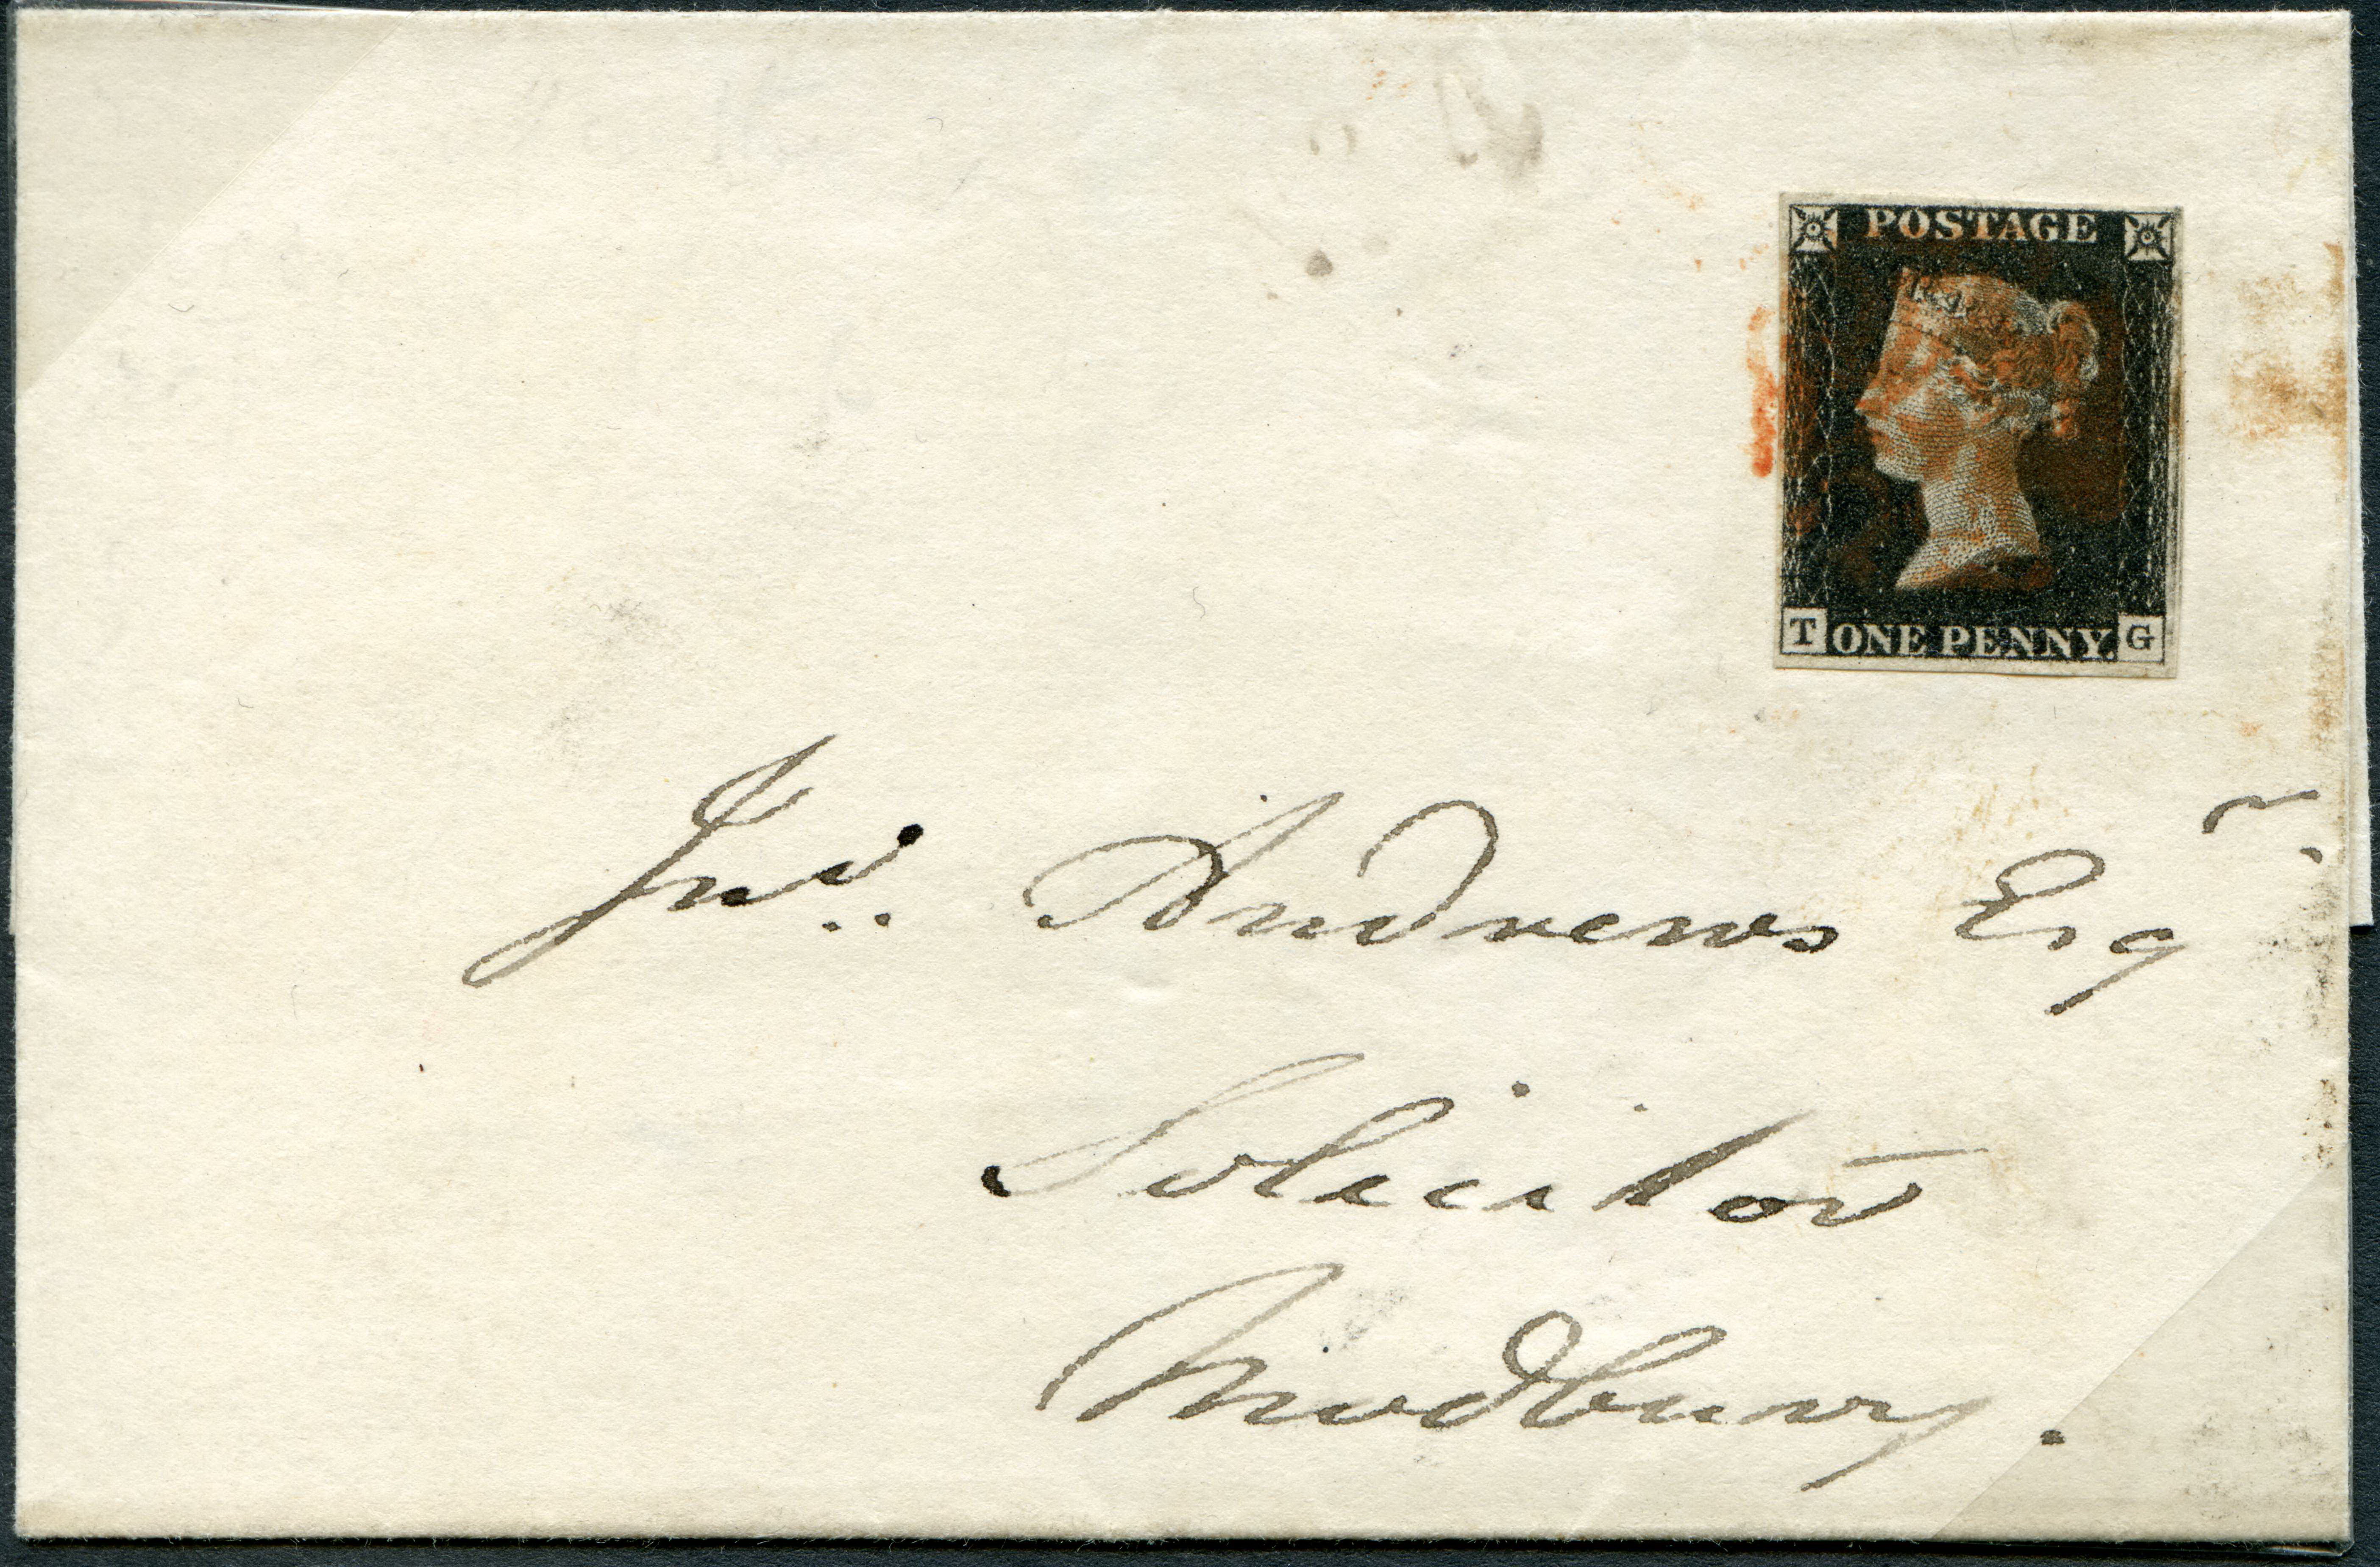 POSTAGE
T ONE PENNY. G
Jno. Andrews Esqr.
Solicitor
Modbury.